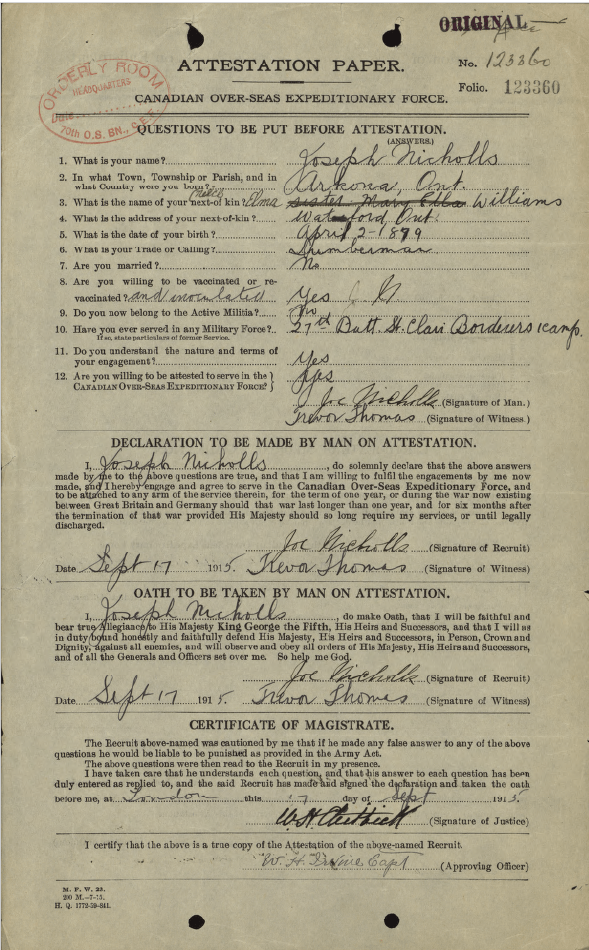 ORIGINAL
ATTESTATION PAPER.
No. 123360
Folio. 123360
CANADIAN OVER-SEAS EXPEDITIONARY FORCE.
ORDERLY ROOM
HEADQUARTERS
Date
70th O.S. BN., C.E.F.
QUESTIONS TO BE PUT BEFORE ATTESTATION.
(ANSWERS.)
1. What is your name? Joseph Nicholls
2. In what Town, Township or Parish, and in
what Country were you born? Arkona, Ont.
3. What is the name of your next-of kin? Elma sister Mary Ella Williams
4. What is the address of your next-of-kin? Waterford, Ont.
5. What is the date of your birth? April 2-1879
6. What is your Trade or Calling? Lumberman
7. Are you married? No
8. Are you willing to be vaccinated or re-
vaccinated? and inoculated Yes
9. Do you now belong to the Active Militia? No
10. Have you ever served in any Military Force? 27th Batt. St. Clair Borderers 1 camp.
If so, state particulars of former Service.
11. Do you understand the nature and terms of
your engagement? Yes
12. Are you willing to be attested to serve in the
CANADIAN OVER-SEAS EXPEDITIONARY FORCE? Yes
Joe Nicholls (Signature of Man.)
Trevor Thomas (Signature of Witness.)
DECLARATION TO BE MADE BY MAN ON ATTESTATION.
I, Joseph Nicholls, do solemnly declare that the above answers
made by me to the above questions are true, and that I am willing to fulfil the engagements by me now
made, and I hereby engage and agree to serve in the Canadian Over-Seas Expeditionary Force, and
to be attached to any arm of the service therein, for the term of one year, or during the war now existing
between Great Britain and Germany should that war last longer than one year, and for six months after
the termination of that war provided His Majesty should so long require my services, or until legally
discharged.
Joe Nicholls (Signature of Recruit)
Date Sept 17 1915. Trevor Thomas (Signature of Witness)
OATH TO BE TAKEN BY MAN ON ATTESTATION.
I, Joseph Nicholls, do make Oath, that I will be faithful and
bear true Allegiance to His Majesty King George the Fifth, His Heirs and Successors, and that I will as
in duty bound honestly and faithfully defend His Majesty, His Heirs and Successors, in Person, Crown and
Dignity, against all enemies, and will observe and obey all orders of His Majesty, His Heirs and Successors,
and of all the Generals and Officers set over me. So help me God.
Joe Nicholls (Signature of Recruit)
Date Sept 17 1915. Trevor Thomas (Signature of Witness)
CERTIFICATE OF MAGISTRATE.
The Recruit above-named was cautioned by me that if he made any false answer to any of the above
questions he would be liable to be punished as provided in the Army Act.
The above questions were then read to the Recruit in my presence.
I have taken care that he understands each question, and that his answer to each question has been
duly entered as replied to, and the said Recruit has made and signed the declaration and taken the oath
before me, at London this 17 day of Sept 1915.
(Signature of Justice)
I certify that the above is a true copy of the Attestation of the above-named Recruit.
Capt (Approving Officer)
M. F. W. 23.
200 M.-7-15.
H. Q. 1772-39-841.